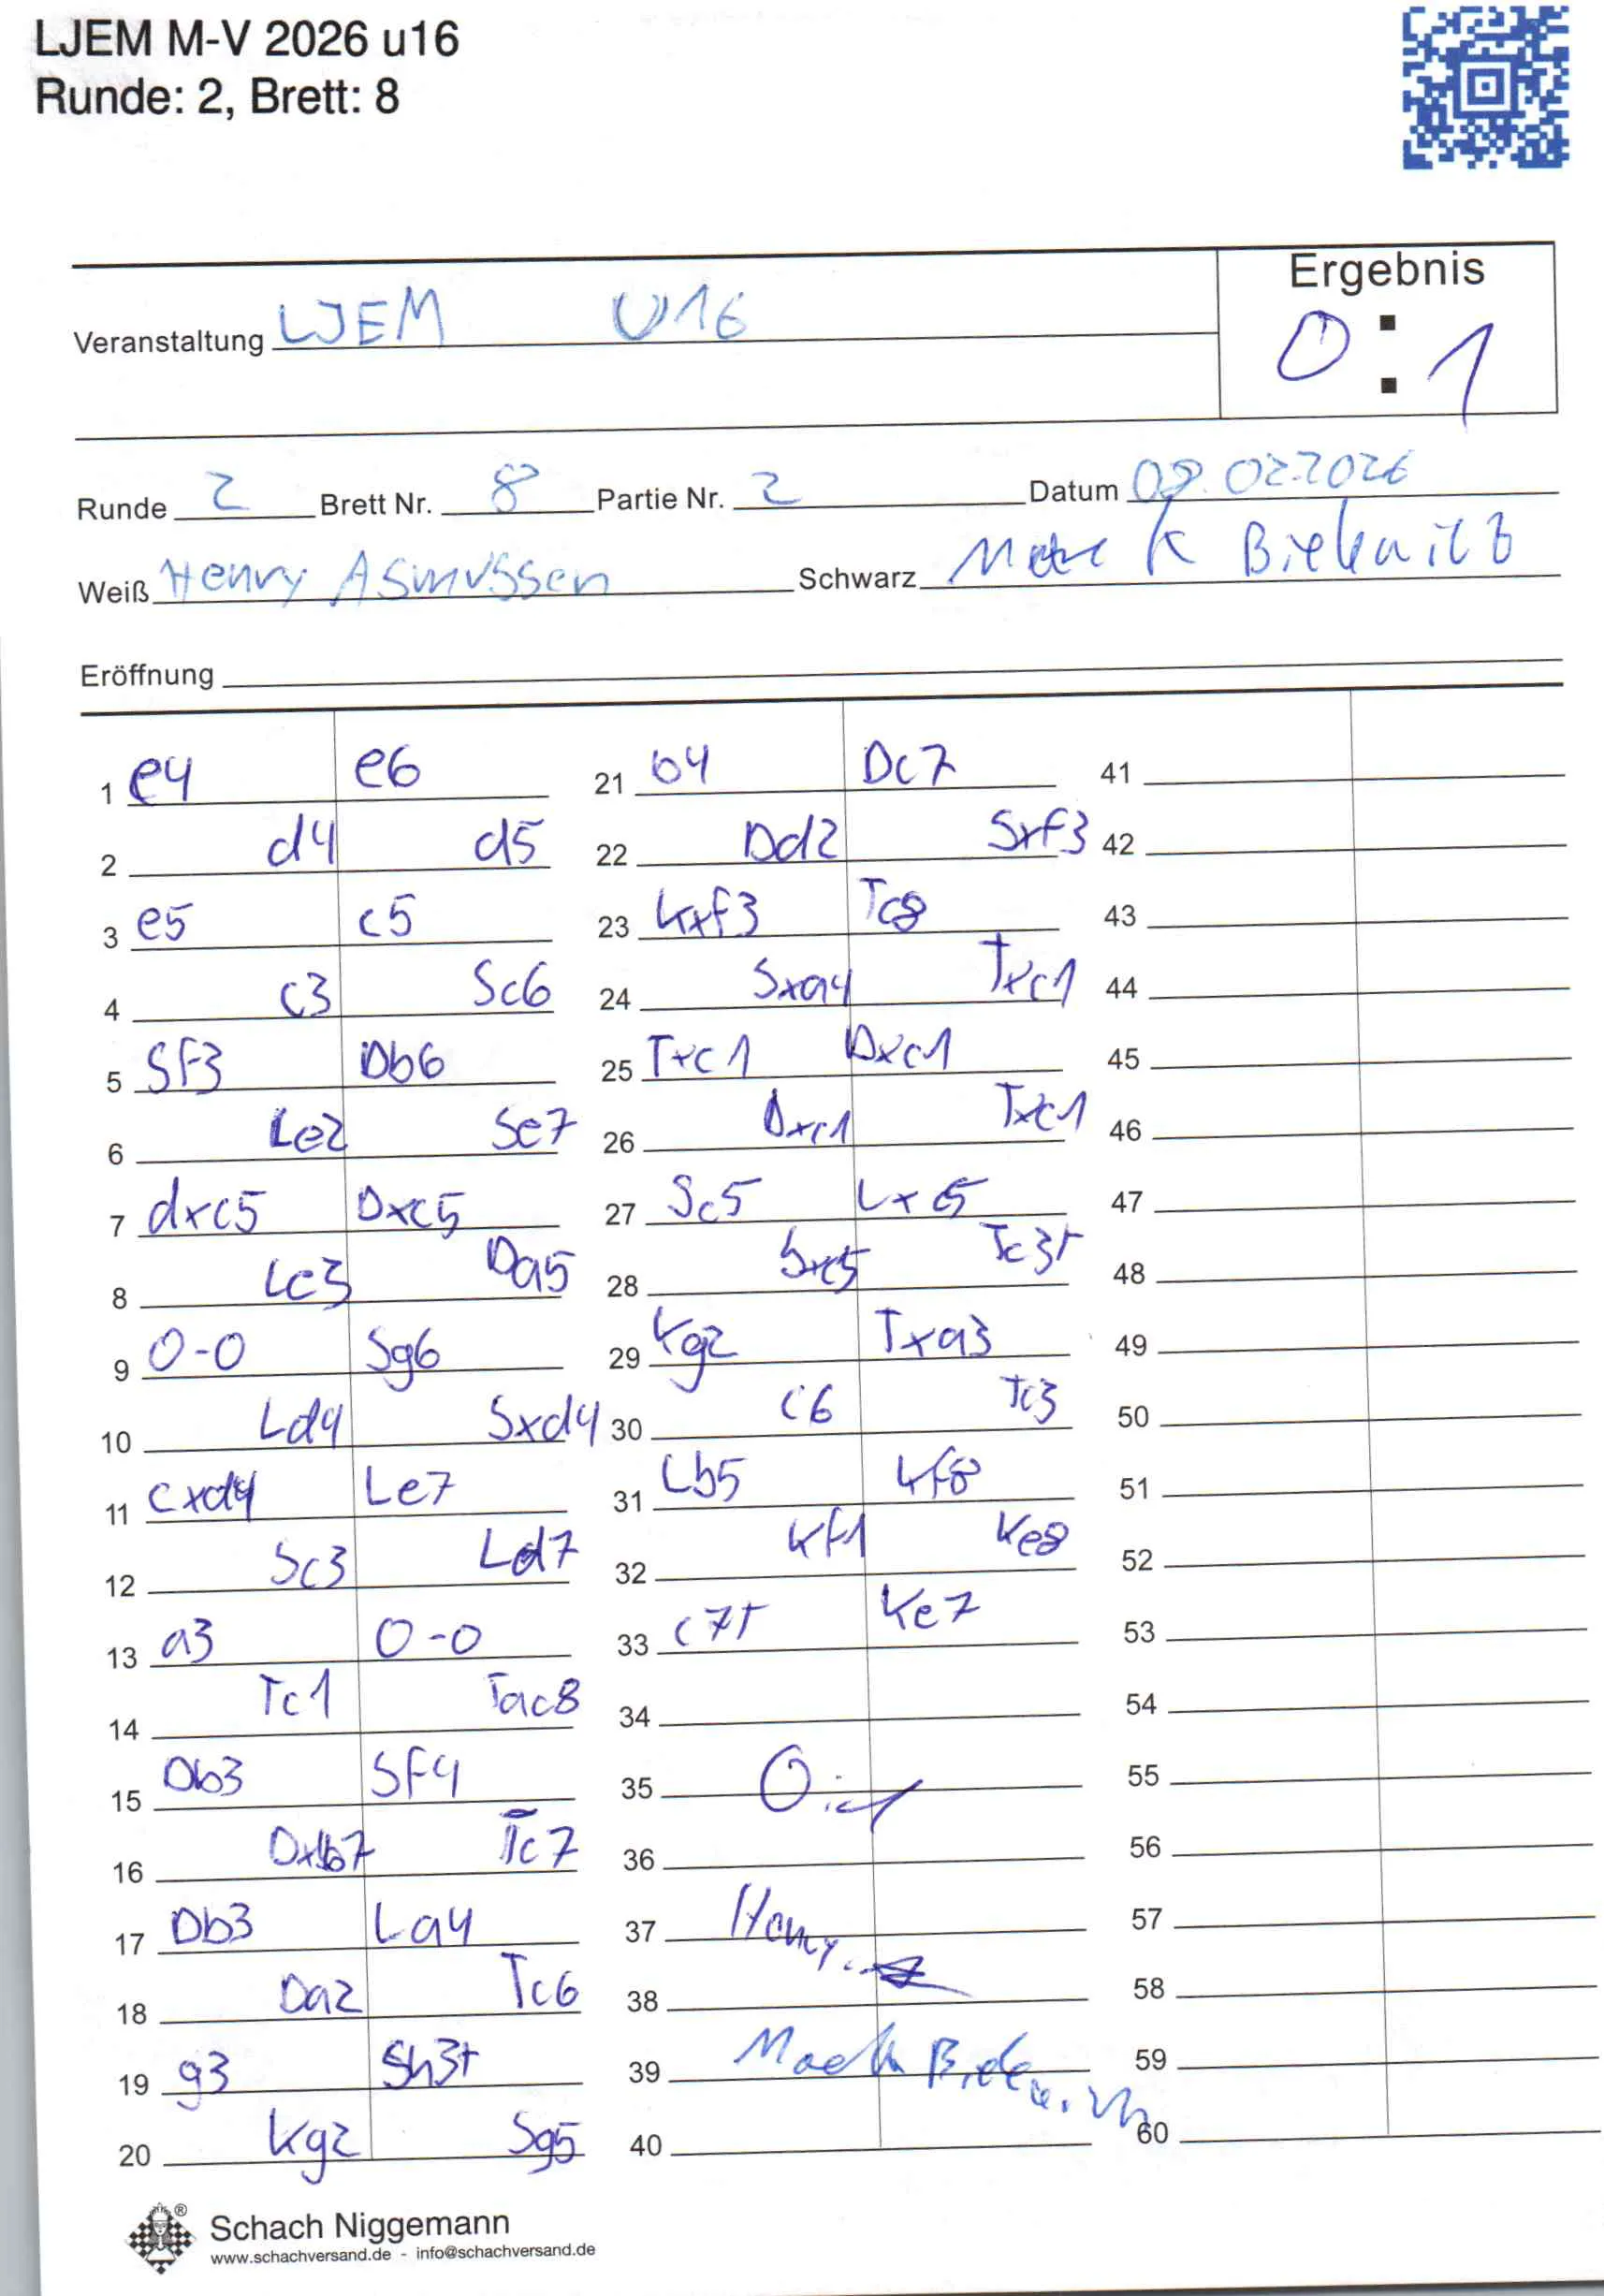 LJEM M-V 2026 u16
Runde: 2, Brett: 8
Ergebnis
0:1
Veranstaltung LJEM U16
Runde 2 Brett Nr. 8 Partie Nr. 2 Datum 08.02.2026
Weiß Henry Asmussen Schwarz
Eröffnung
1 e4 e6
2 d4 d5
3 e5 c5
4 c3 Sc6
5 Sf3 Db6
6 Le2 Se7
7 dxc5 Dxc5
8 Le3 Da5
9 0-0 Sg6
10 Ld4 Sxd4
11 cxd4 Le7
12 Sc3 Ld7
13 a3 0-0
14 Tc1 Tac8
15 Db3 Sf4
16 Dxb7 Tc7
17 Db3 La4
18 Da2 Tc6
19 g3 Sh3+
20 Kg2 Sg5
21 b4 Dc7
22 Dd2 Sxf3
23 Kxf3 Tc8
24 Sxa4 Txc1
25 Txc1 Dxc1
26 Dxc1 Txc1
27 Sc5 Lxc5
28 bxc5 Tc3+
29 Kg2 Txa3
30 c6 Tc3
31 Lb5 Kf8
32 Kf1 Ke8
33 c7+ Ke7
34
35 0:1
36
37 Henry
38
39
40
41
42
43
44
45
46
47
48
49
50
51
52
53
54
55
56
57
58
59
60
®
Schach Niggemann
www.schachversand.de - info@schachversand.de